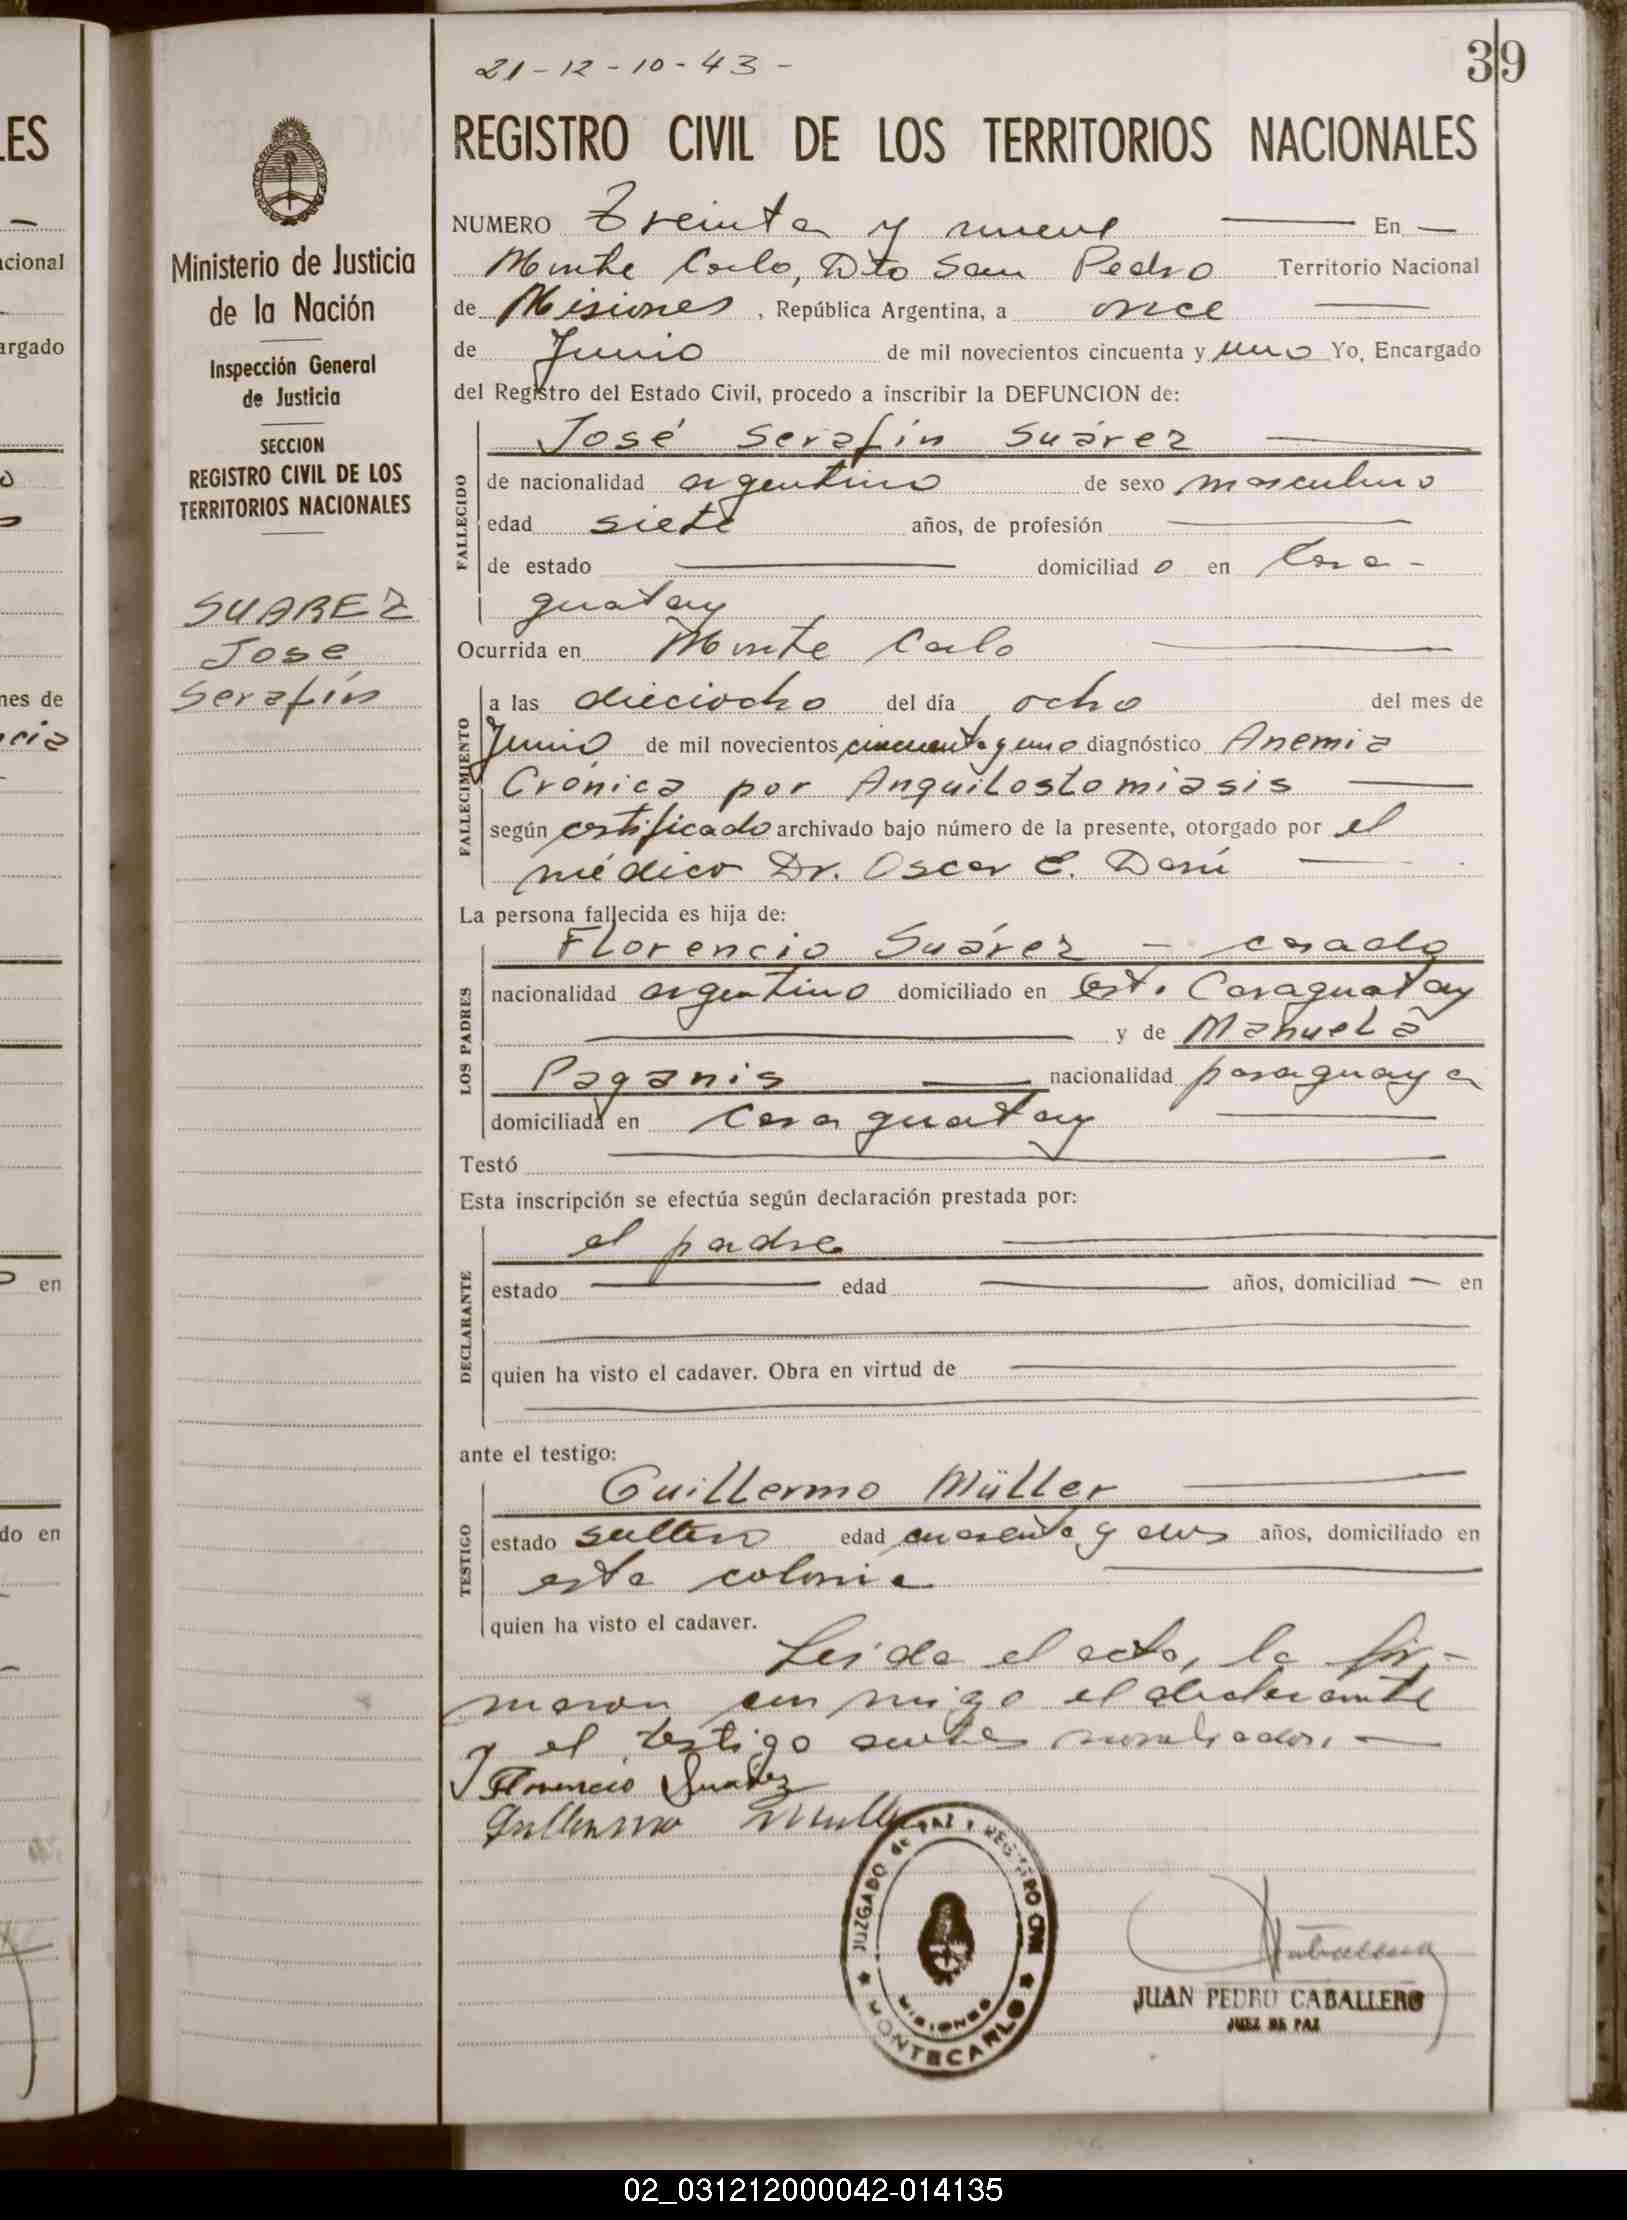 21-12-10-43-
39
REGISTRO CIVIL DE LOS TERRITORIOS NACIONALES
Ministerio de Justicia
de la Nación
Inspección General
de Justicia
SECCION
REGISTRO CIVIL DE LOS
TERRITORIOS NACIONALES
SUAREZ
José
Serafín
NUMERO Treinta y nueve En
Monte Carlo, Dto San Pedro Territorio Nacional
de Misiones, República Argentina, a once
de Junio de mil novecientos cincuenta y uno Yo, Encargado
del Registro del Estado Civil, procedo a inscribir la DEFUNCION de:
FALLECIDO
José Serafín Suárez
de nacionalidad argentino de sexo masculino
edad siete años, de profesión
de estado domiciliad o en Cara-
guatay
Ocurrida en Monte Carlo
FALLECIMIENTO
a las dieciocho del día ocho del mes de
Junio de mil novecientos cincuenta y uno diagnóstico Anemia
Crónica por Anquilostomiasis
según certificado archivado bajo número de la presente, otorgado por el
médico Dr. Oscar E. Darú
La persona fallecida es hija de:
LOS PADRES
Florencio Suárez - casado
nacionalidad argentino domiciliado en Caraguatay
y de Manuela
Paganis nacionalidad paraguaya
domiciliada en Caraguatay
Testó
Esta inscripción se efectúa según declaración prestada por:
DECLARANTE
el padre
estado edad años, domiciliad en
quien ha visto el cadaver. Obra en virtud de
ante el testigo:
TESTIGO
Guillermo Müller
estado soltero edad cuarenta y dos años, domiciliado en
esta colonia
quien ha visto el cadaver.
Leida el acta, la fir-
maron con migo el declarante
y el testigo antes nombrados.
Florencio Suarez
Guillermo Muller
JUZGADO de PAZ Y REGISTRO CIVIL
MISIONES
MONTECARLO
JUAN PEDRO CABALLERO
JUEZ DE PAZ
LES
cional
argado
nes de
en
do en
02_031212000042-014135